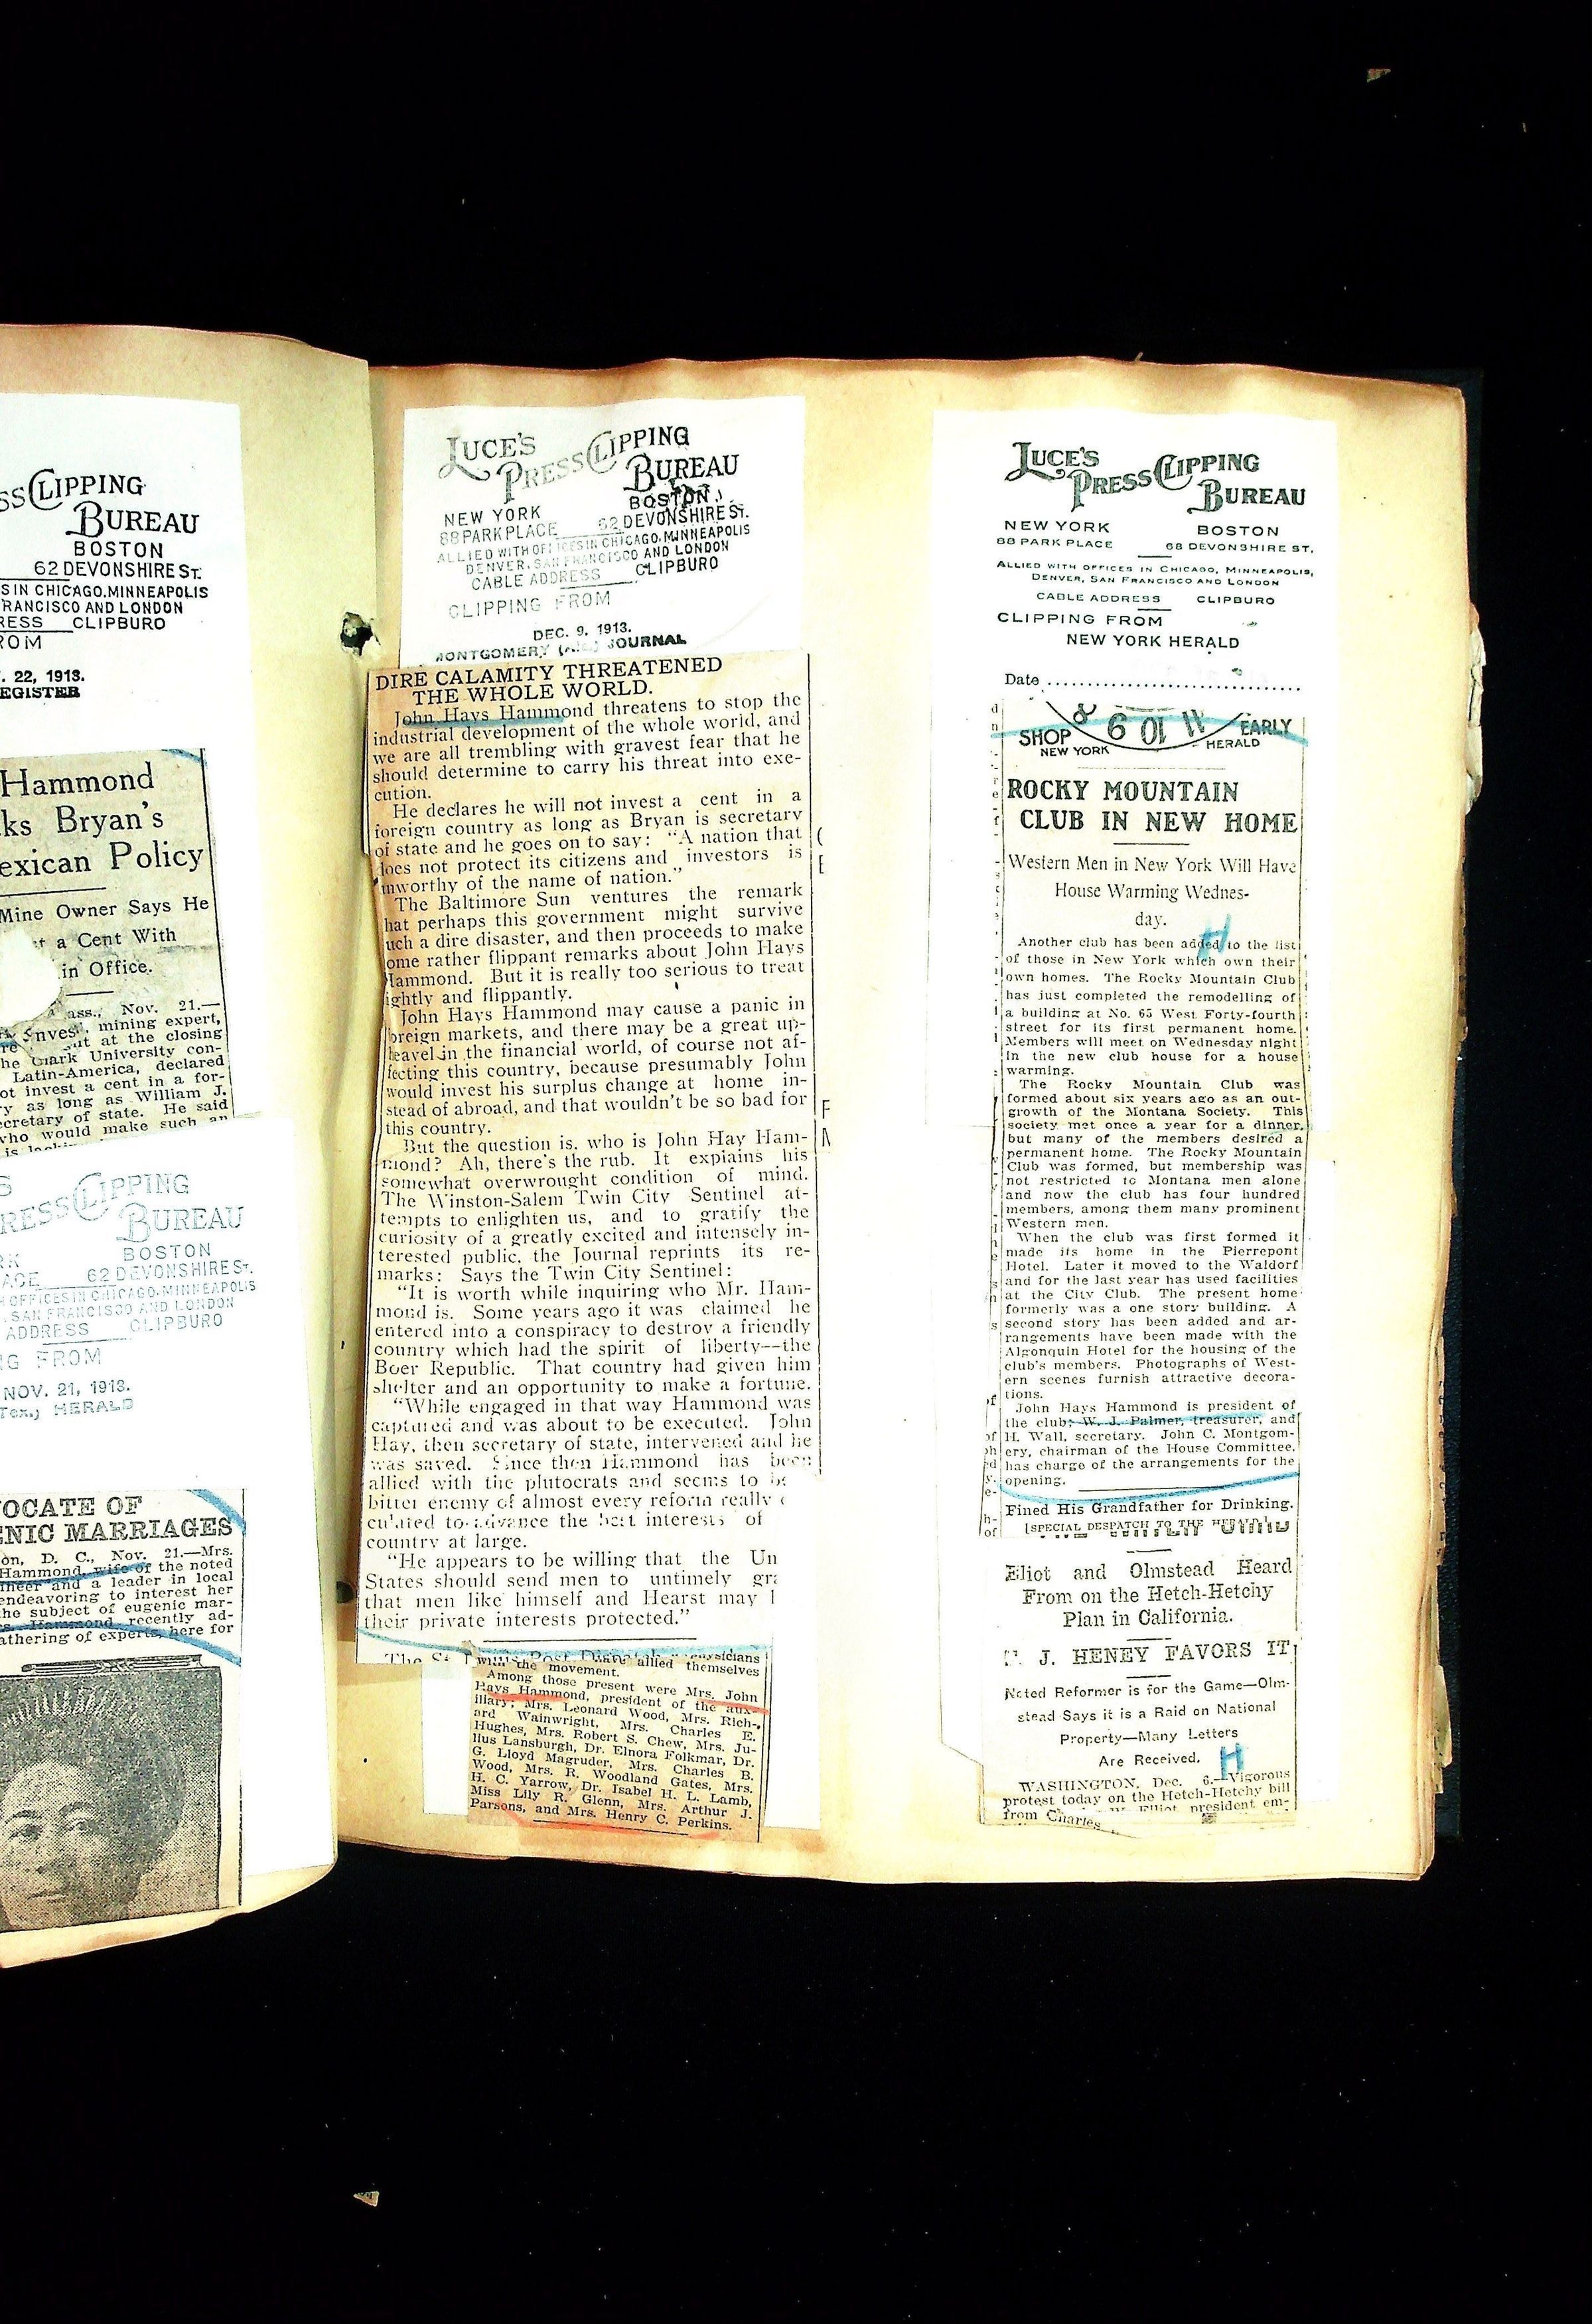 SS CLIPPING
BUREAU
BOSTON
62 DEVONSHIRE ST.
S IN CHICAGO. MINNEAPOLIS
RANCISCO AND LONDON
RESS CLIPBURO
ROM
. 22, 1913.
EGISTER
Hammond
ks Bryan's
exican Policy
Mine Owner Says He
t a Cent With
in Office.
ass., Nov. 21.—
mining expert,
at the closing
he Clark University con-
Latin-America, declared
ot invest a cent in a for-
y as long as William J.
cretary of state. He said
who would make such an
PRESS CLIPPING
BUREAU
BOSTON
ACE 62 DEVONSHIRE ST.
OFFICES IN CHICAGO. MINNEAPOLIS
, SAN FRANCISCO AND LONDON
ADDRESS CLIPBURO
G FROM
NOV. 21, 1913.
Tex.) HERALD
OCATE OF
ENIC MARRIAGES
on, D. C., Nov. 21.—Mrs.
Hammond, wife of the noted
ineer and a leader in local
endeavoring to interest her
he subject of eugenic mar-
s. Hammond recently ad-
athering of experts, here for
LUCE'S
PRESS CLIPPING
BUREAU
NEW YORK BOSTON
88 PARK PLACE 62 DEVONSHIRE ST.
ALLIED WITH OFFICES IN CHICAGO, MINNEAPOLIS
DENVER, SAN FRANCISCO AND LONDON
CABLE ADDRESS CLIPBURO
CLIPPING FROM
DEC. 9. 1913.
MONTGOMERY (ALA.) JOURNAL
DIRE CALAMITY THREATENED
THE WHOLE WORLD.
John Hays Hammond threatens to stop the
industrial development of the whole world, and
we are all trembling with gravest fear that he
should determine to carry his threat into exe-
cution.
He declares he will not invest a cent in a
foreign country as long as Bryan is secretary
of state and he goes on to say: "A nation that
does not protect its citizens and investors is
unworthy of the name of nation."
The Baltimore Sun ventures the remark
hat perhaps this government might survive
uch a dire disaster, and then proceeds to make
ome rather flippant remarks about John Hays
Hammond. But it is really too serious to treat
ightly and flippantly.
John Hays Hammond may cause a panic in
foreign markets, and there may be a great up-
heavel in the financial world, of course not af-
fecting this country, because presumably John
would invest his surplus change at home in-
stead of abroad, and that wouldn't be so bad for
this country.
But the question is, who is John Hay Ham-
mond? Ah, there's the rub. It explains his
somewhat overwrought condition of mind.
The Winston-Salem Twin City Sentinel at-
tempts to enlighten us, and to gratify the
curiosity of a greatly excited and intensely in-
terested public, the Journal reprints its re-
marks: Says the Twin City Sentinel:
"It is worth while inquiring who Mr. Ham-
mond is. Some years ago it was claimed he
entered into a conspiracy to destroy a friendly
country which had the spirit of liberty--the
Boer Republic. That country had given him
shelter and an opportunity to make a fortune.
"While engaged in that way Hammond was
captured and was about to be executed. John
Hay, then secretary of state, intervened and he
was saved. Since then Hammond has been
allied with the plutocrats and seems to be
bitter enemy of almost every reform really c
culated to advance the best interests of
country at large.
"He appears to be willing that the Un
States should send men to untimely gra
that men like himself and Hearst may l
their private interests protected."
The St
physicians
with the movement. allied themselves
Among those present were Mrs. John
Hays Hammond, president of the aux-
iliary; Mrs. Leonard Wood, Mrs. Rich-
ard Wainwright, Mrs. Charles E.
Hughes, Mrs. Robert S. Chew, Mrs. Ju-
lius Lansburgh, Dr. Elnora Folkmar, Dr.
G. Lloyd Magruder, Mrs. Charles B.
Wood, Mrs. R. Woodland Gates, Mrs.
H. C. Yarrow, Dr. Isabel H. L. Lamb,
Miss Lily R. Glenn, Mrs. Arthur J.
Parsons, and Mrs. Henry C. Perkins.
LUCE'S
PRESS CLIPPING
BUREAU
NEW YORK BOSTON
88 PARK PLACE 68 DEVONSHIRE ST.
ALLIED WITH OFFICES IN CHICAGO, MINNEAPOLIS,
DENVER, SAN FRANCISCO AND LONDON
CABLE ADDRESS CLIPBURO
CLIPPING FROM
NEW YORK HERALD
Date
SHOP EARLY
NEW YORK HERALD
ROCKY MOUNTAIN
CLUB IN NEW HOME
Western Men in New York Will Have
House Warming Wednes-
day.
H
Another club has been added to the list
of those in New York which own their
own homes. The Rocky Mountain Club
has just completed the remodelling of
a building at No. 65 West Forty-fourth
street for its first permanent home.
Members will meet on Wednesday night
in the new club house for a house
warming.
The Rocky Mountain Club was
formed about six years ago as an out-
growth of the Montana Society. This
society met once a year for a dinner,
but many of the members desired a
permanent home. The Rocky Mountain
Club was formed, but membership was
not restricted to Montana men alone
and now the club has four hundred
members, among them many prominent
Western men.
When the club was first formed it
made its home in the Pierrepont
Hotel. Later it moved to the Waldorf
and for the last year has used facilities
at the City Club. The present home
formerly was a one story building. A
second story has been added and ar-
rangements have been made with the
Algonquin Hotel for the housing of the
club's members. Photographs of West-
ern scenes furnish attractive decora-
tions.
John Hays Hammond is president of
the club; W. J. Palmer, treasurer, and
H. Wall, secretary. John C. Montgom-
ery, chairman of the House Committee,
has charge of the arrangements for the
opening.
Fined His Grandfather for Drinking.
[SPECIAL DESPATCH TO THE HERALD.]
Eliot and Olmstead Heard
From on the Hetch-Hetchy
Plan in California.
J. HENEY FAVORS IT
Noted Reformer is for the Game—Olm-
stead Says it is a Raid on National
Property—Many Letters
Are Received.
H
WASHINGTON, Dec. 6.—Vigorous
protest today on the Hetch-Hetchy bill
from Charles W. Elliot, president em-